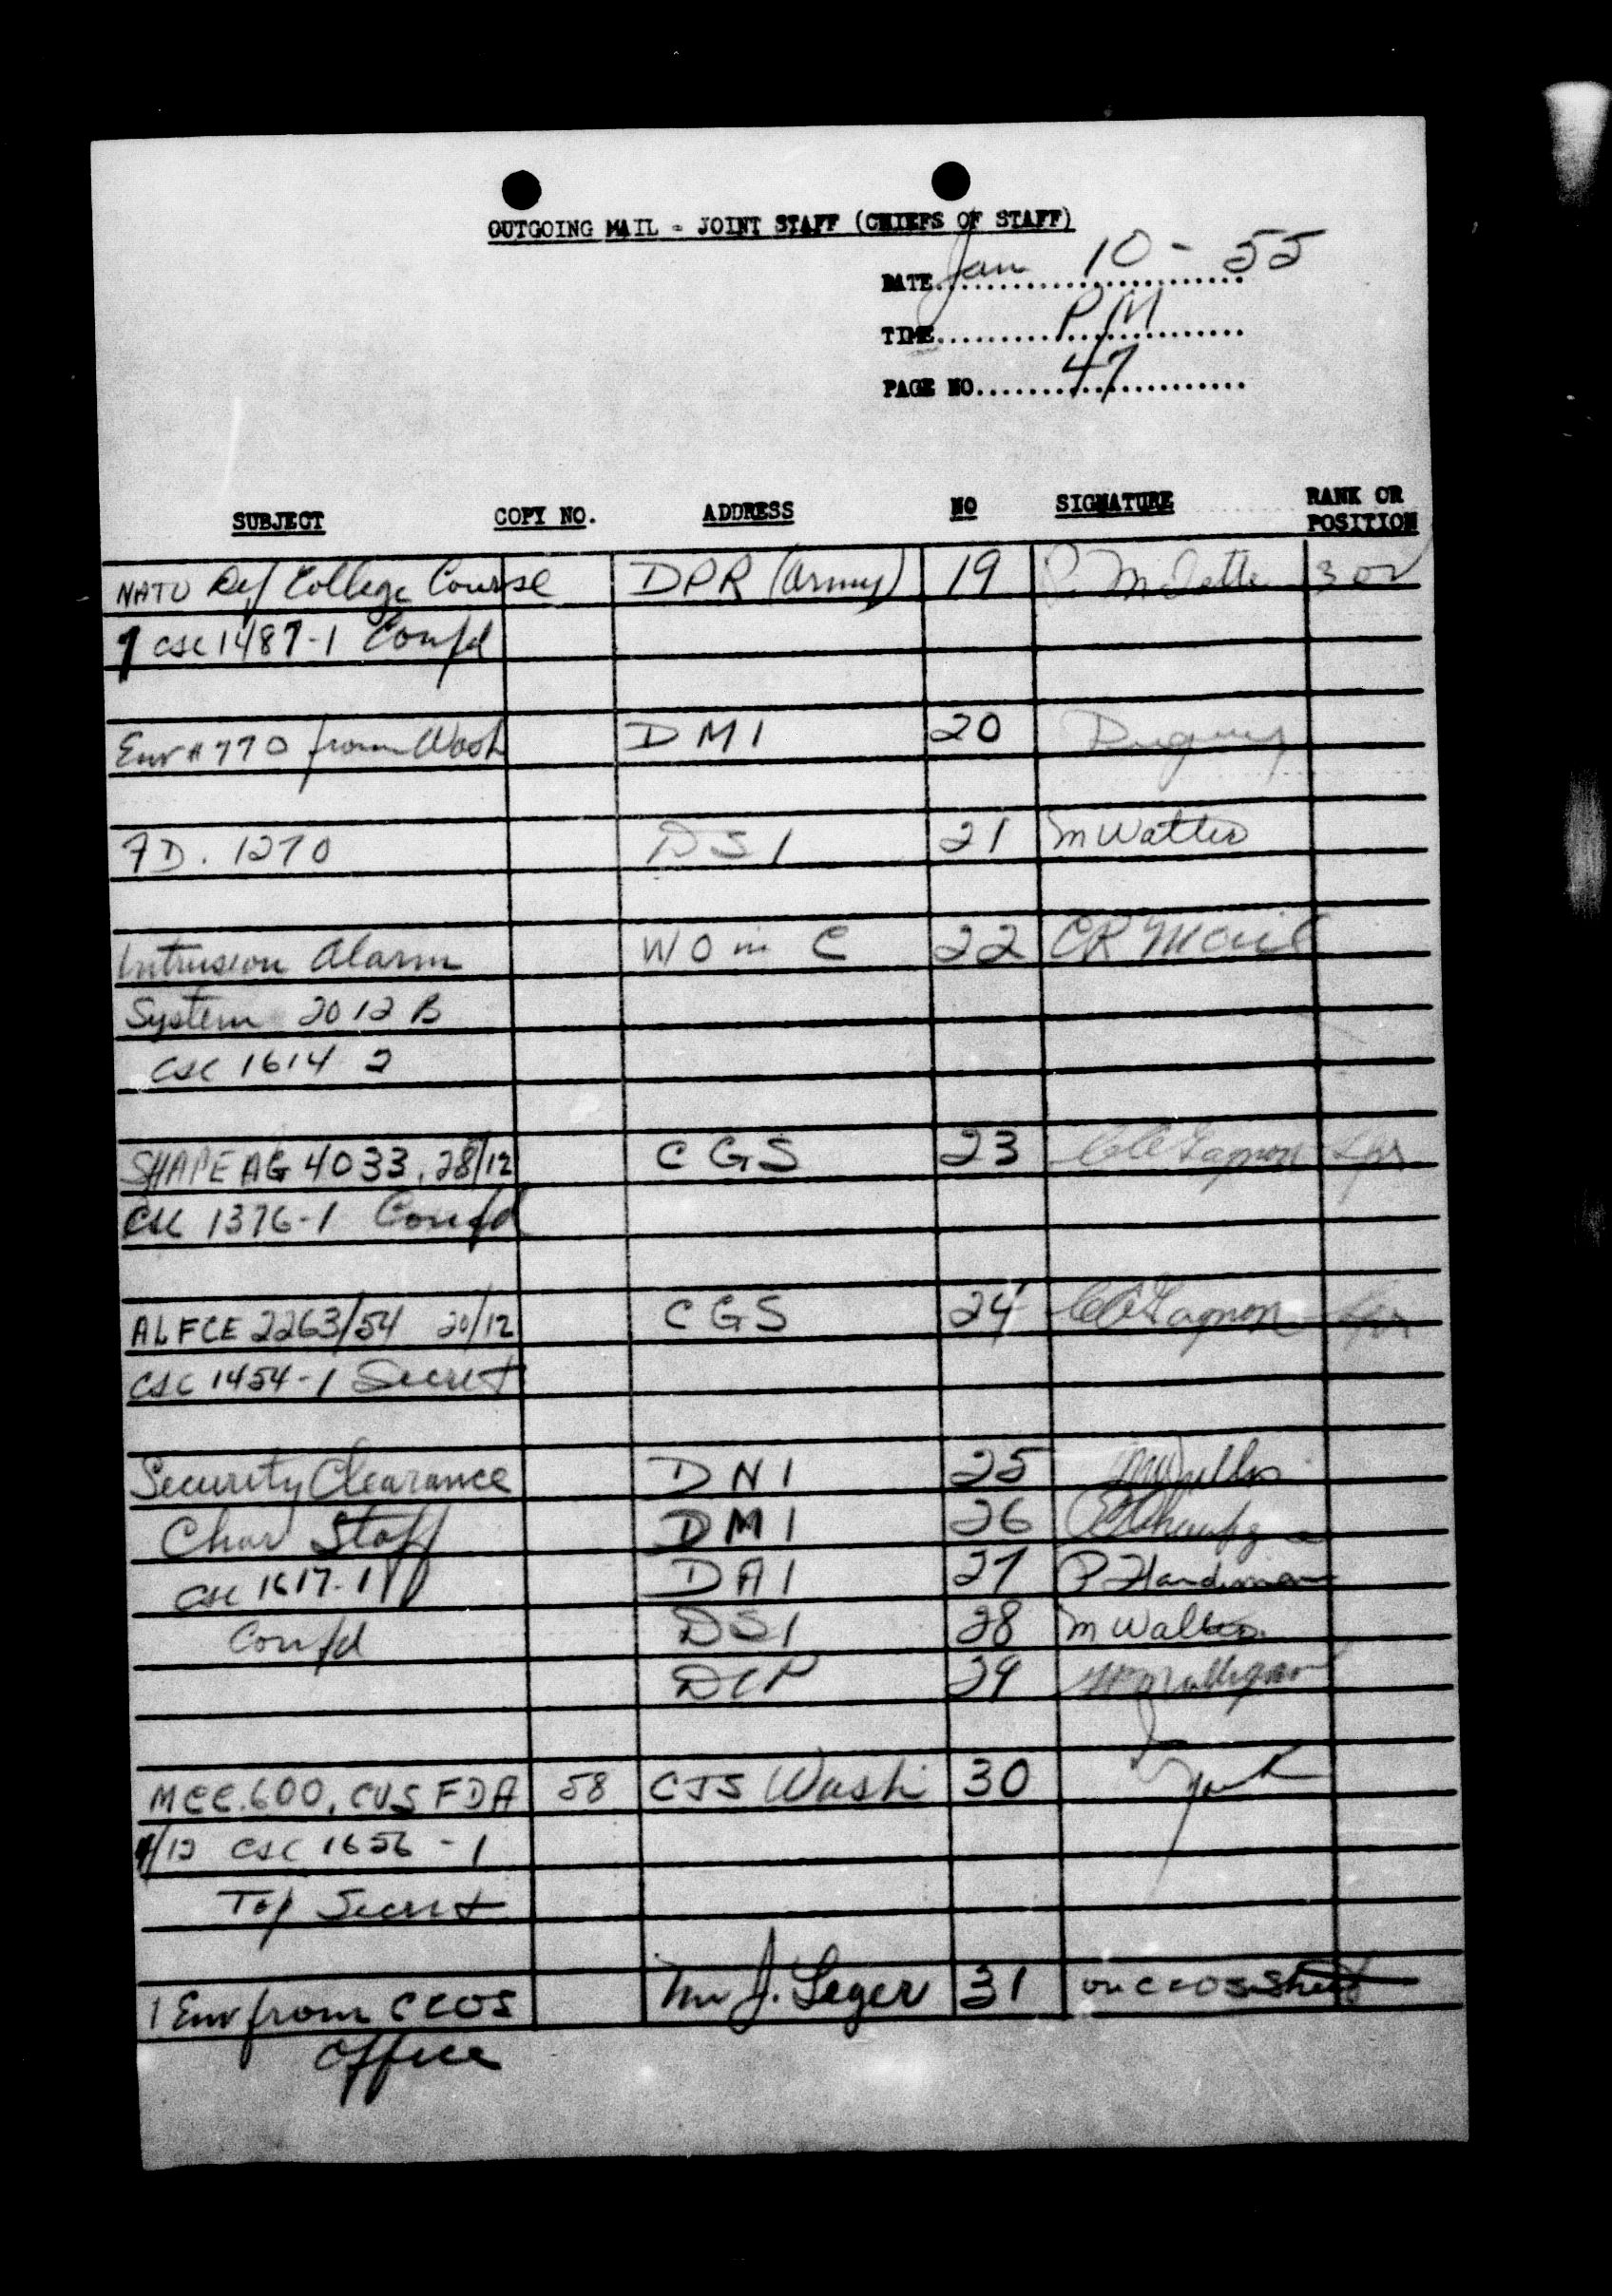 OUTGOING MAIL - JOINT STAFF (CHIEFS OF STAFF)
DATE Jan 10 - 55
TIME PM
PAGE NO. 47
SUBJECT COPY NO. ADDRESS NO SIGNATURE RANK OR POSITION
NATO Def College Course DPR (Army) 19
csc 1487-1 Confd
Env # 770 from Wash DMI 20
FD. 1270 DSI 21 M Watters
Intrusion Alarm WO in C 22 CR
System 2012 B
csc 1614 2
SHAPE AG 4033, 28/12 CGS 23 Gagnon
csc 1376-1 Confd
ALFCE 2263/54 20/12 CGS 24 Gagnon
csc 1454-1 Secret
Security Clearance DNI 25
Char Staff DMI 26
csc 1617-1 DAI 27 P Hardiman
Confd DSI 28 M
29
MCC.600, CUS FDA 58 CJS Wash 30
/12 csc 1656 - 1
Top Secret
1 Env from CCOS J. Leger 31 on CCOS Sheet
Office